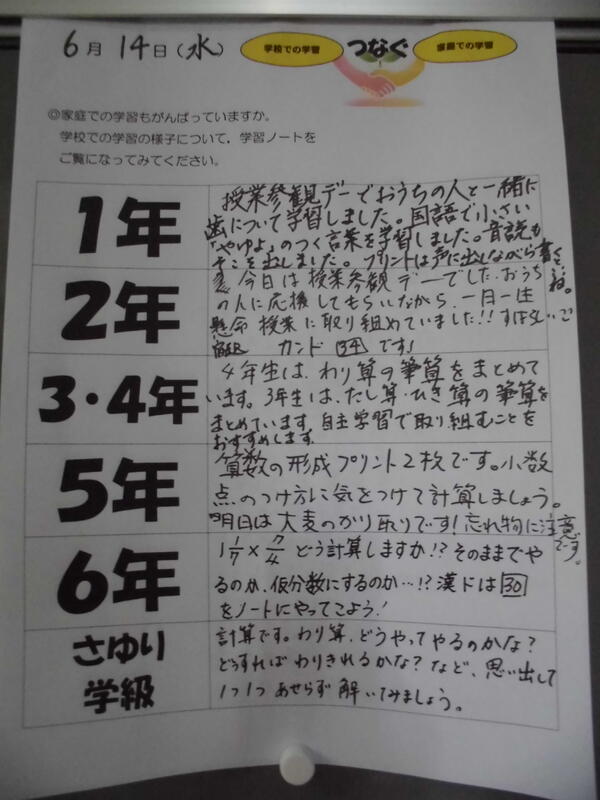 6月14日(水)
学校での学習 つなぐ 家庭での学習
◎家庭での学習もがんばっていますか。
学校での学習の様子について,学習ノートを
ご覧になってみてください。
1年
授業参観デーでおうちの人と一緒に
歯について学習しました。国語で小さい
「やゆよ」のつく言葉を学習しました。音読も
そこを出しました。プリントは声に出しながら書くとね。
2年
今日は授業参観デーでした。おうち
の人に応援してもらいながら、一日一生
懸命授業に取り組めていました!!
カンド34です!
3・4年
4年生は、わり算の筆算をまとめて
います。3年生は、たし算・ひき算の筆算を
まとめています。自主学習で取り組むことを
おすすめします。
5年
算数の形成プリント2枚です。小数
点のつけ方に気をつけて計算しましょう。
明日は大麦のかり取りです!忘れ物に注意
です。
6年
1 1/7×7/4 どう計算しますか!?そのままでや
るのか、仮分数にするのか…!?漢ドは30
をノートにやってこよう!
さゆり
学級
計算です。わり算、どうやってやるのかな?
どうすればわりきれるかな?など、思い出して
1つ1つあせらず解いてみましょう。